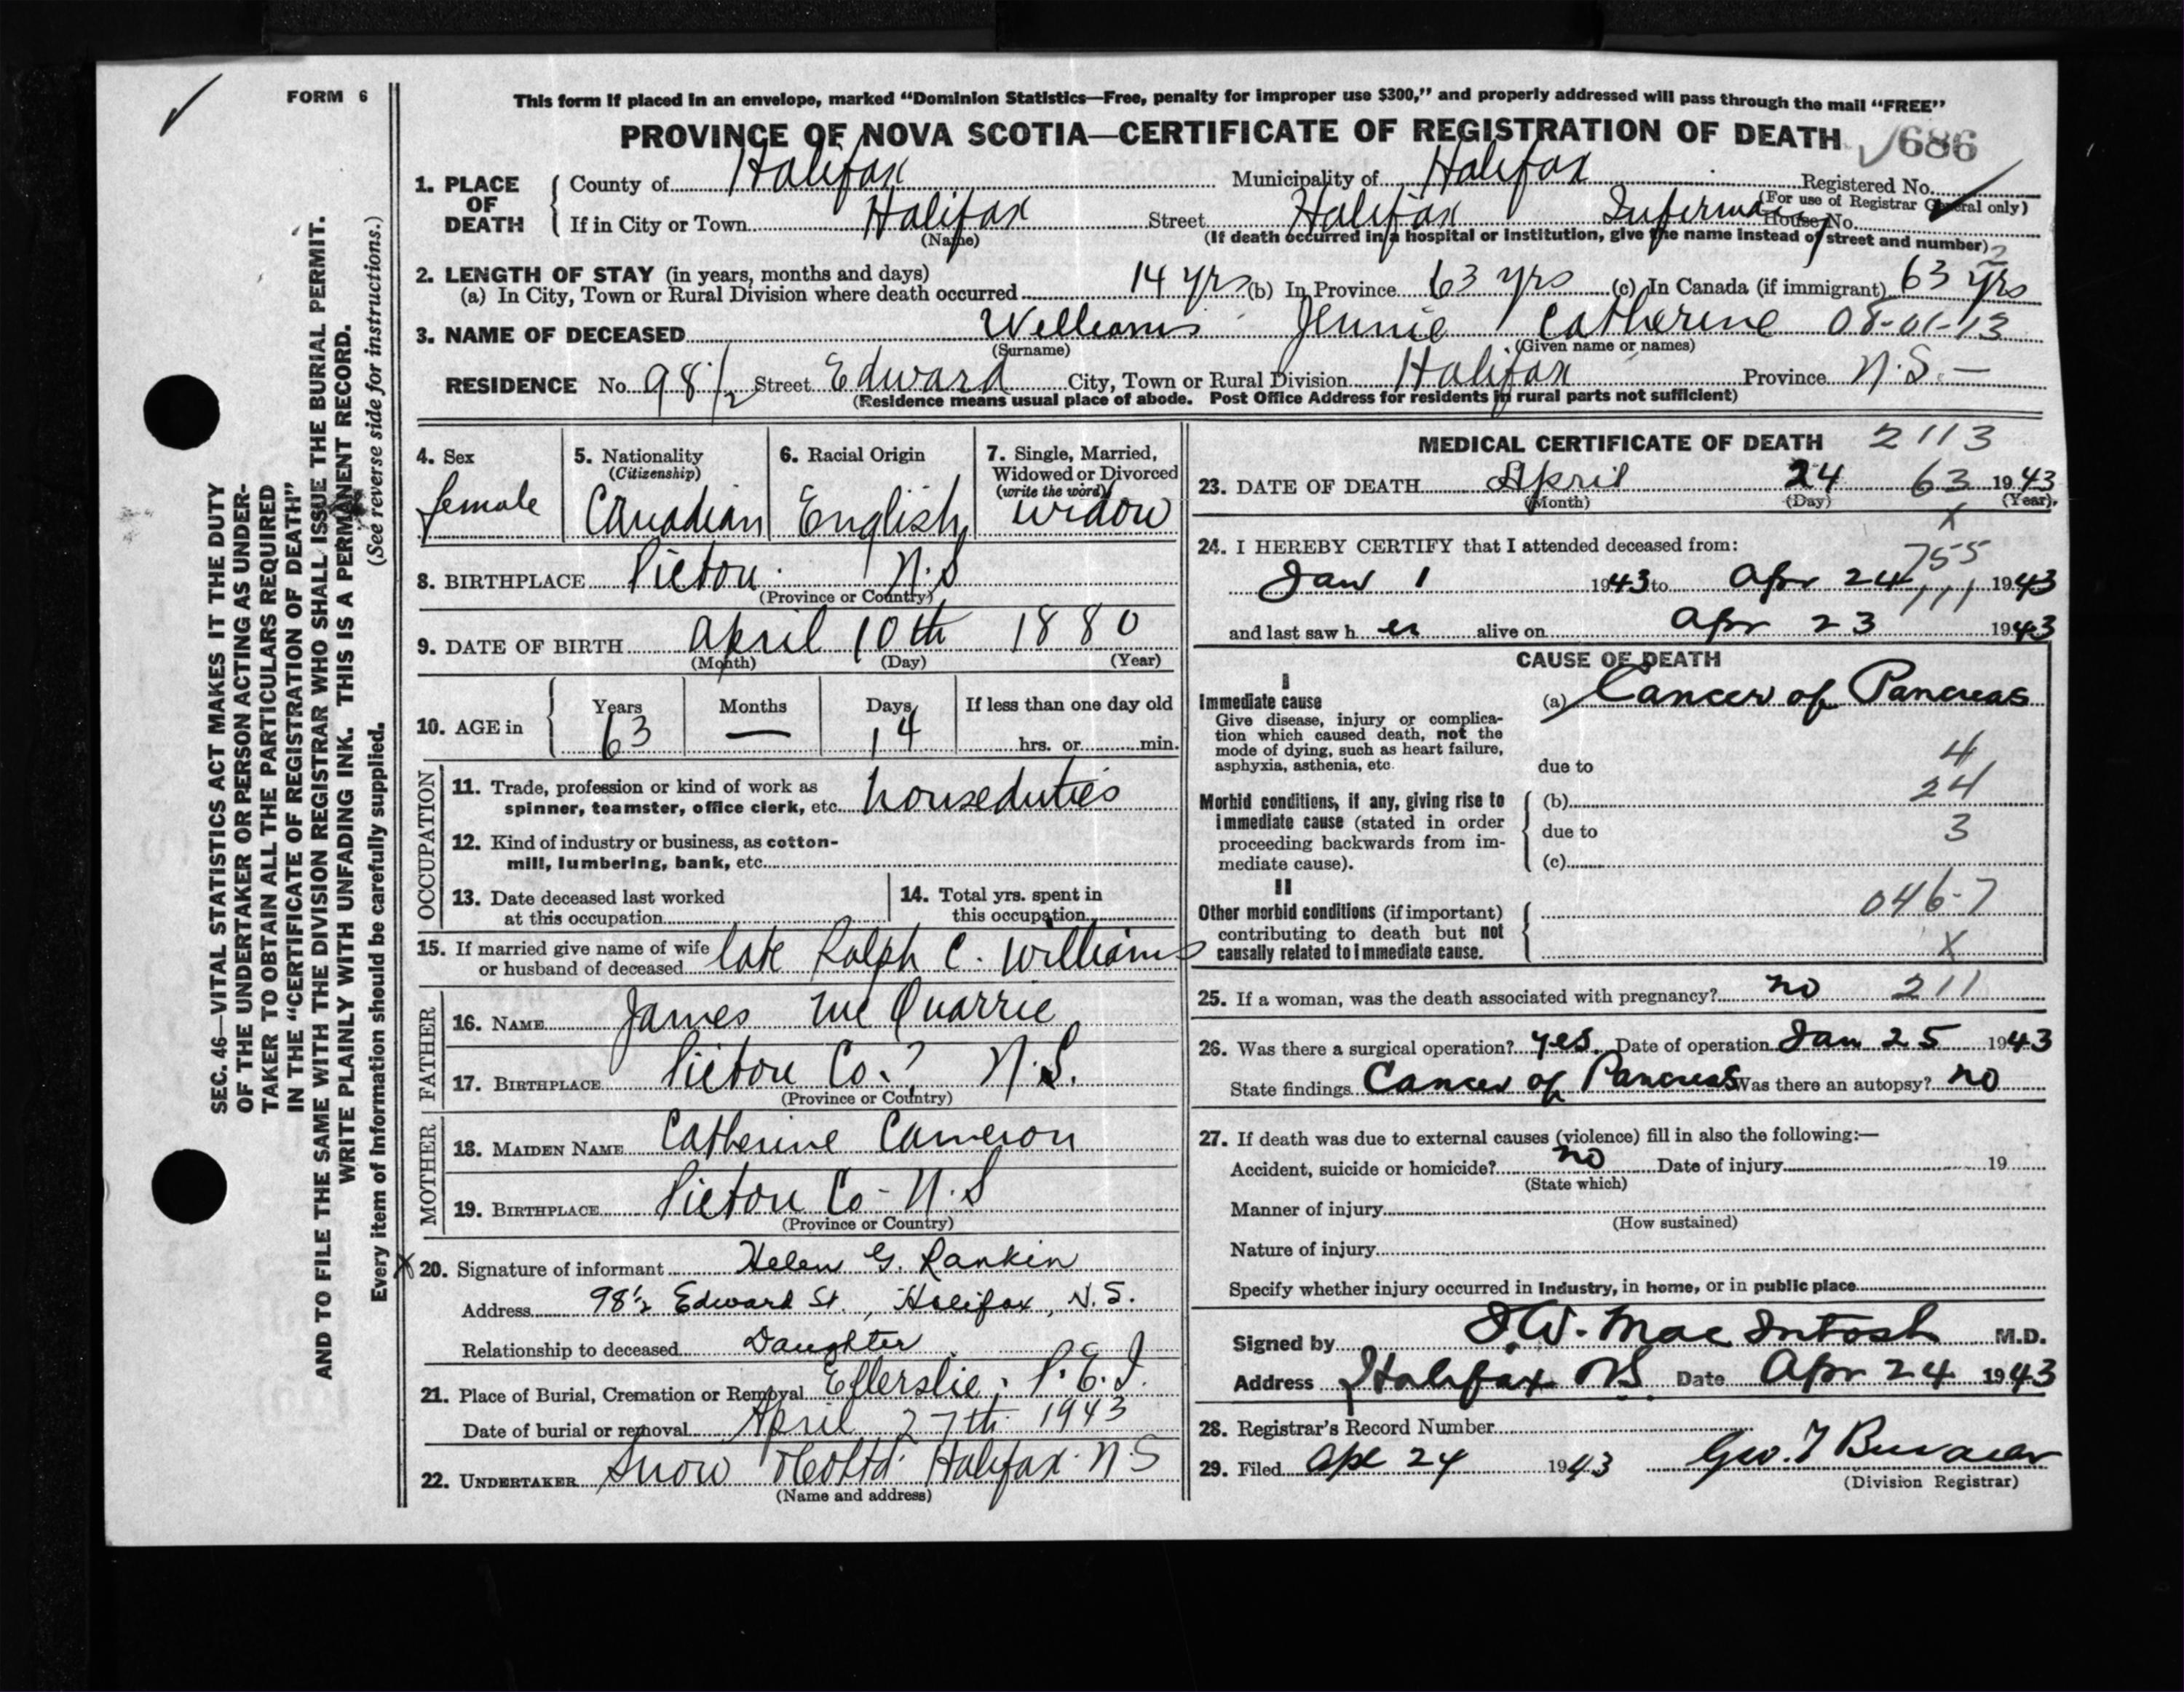 FORM 6
This form if placed in an envelope, marked “Dominion Statistics—Free, penalty for improper use $300,” and properly addressed will pass through the mail “FREE”
PROVINCE OF NOVA SCOTIA—CERTIFICATE OF REGISTRATION OF DEATH
686
1. PLACE OF DEATH
County of Halifax Municipality of Halifax Registered No.
(For use of Registrar General only)
If in City or Town Halifax Street Halifax Infirmary House No.
(Name) (If death occurred in a hospital or institution, give the name instead of street and number)
2
2. LENGTH OF STAY (in years, months and days)
(a) In City, Town or Rural Division where death occurred 14 yrs (b) In Province 63 yrs (c) In Canada (if immigrant) 63 yrs
3. NAME OF DECEASED Williams Jennie Catherine 08-01-13
(Surname) (Given name or names)
RESIDENCE No. 98 1/2 Street Edward City, Town or Rural Division Halifax Province N.S. —
(Residence means usual place of abode. Post Office Address for residents in rural parts not sufficient)
4. Sex
female
5. Nationality
(Citizenship)
Canadian
6. Racial Origin
English
7. Single, Married,
Widowed or Divorced
(write the word)
widow
8. BIRTHPLACE Pictou N.S
(Province or Country)
9. DATE OF BIRTH April 10th 1880
(Month) (Day) (Year)
10. AGE in
Years Months Days If less than one day old
63 — 14 hrs. or min.
OCCUPATION
11. Trade, profession or kind of work as
spinner, teamster, office clerk, etc. houseduties
12. Kind of industry or business, as cotton-
mill, lumbering, bank, etc.
13. Date deceased last worked
at this occupation
14. Total yrs. spent in
this occupation
15. If married give name of wife
or husband of deceased late Ralph C. Williams
FATHER
16. NAME James McQuarrie
17. BIRTHPLACE Pictou Co. ? N.S.
(Province or Country)
MOTHER
18. MAIDEN NAME Catherine Cameron
19. BIRTHPLACE Pictou Co - N.S
(Province or Country)
X 20. Signature of informant Helen G. Rankin
Address 98 1/2 Edward St., Halifax, N.S.
Relationship to deceased Daughter
21. Place of Burial, Cremation or Removal Ellerslie, P.E.I.
Date of burial or removal April 27th 1943
22. UNDERTAKER Snow & Co Ltd. Halifax. N S
(Name and address)
MEDICAL CERTIFICATE OF DEATH 2113
23. DATE OF DEATH April 24 63 1943
(Month) (Day) (Year)
X
24. I HEREBY CERTIFY that I attended deceased from:
755
Jan 1 1943 to Apr 24 1943
111
and last saw her alive on Apr 23 1943
CAUSE OF DEATH
I
Immediate cause
Give disease, injury or complica-
tion which caused death, not the
mode of dying, such as heart failure,
asphyxia, asthenia, etc.
(a) Cancer of Pancreas
4
due to
24
Morbid conditions, if any, giving rise to
immediate cause (stated in order
proceeding backwards from im-
mediate cause).
(b)
due to 3
(c)
II
Other morbid conditions (if important)
contributing to death but not
causally related to immediate cause.
046-7
X
25. If a woman, was the death associated with pregnancy? no 211
26. Was there a surgical operation? yes. Date of operation Jan 25 1943
State findings Cancer of Pancreas Was there an autopsy? no
27. If death was due to external causes (violence) fill in also the following:—
Accident, suicide or homicide? no Date of injury 19
(State which)
Manner of injury
(How sustained)
Nature of injury
Specify whether injury occurred in industry, in home, or in public place
Signed by J.W. MacIntosh M.D.
Address Halifax N.S. Date Apr 24 1943
28. Registrar’s Record Number
29. Filed Apl 24 1943 Geo. T
(Division Registrar)
SEC. 46—VITAL STATISTICS ACT MAKES IT THE DUTY
OF THE UNDERTAKER OR PERSON ACTING AS UNDER-
TAKER TO OBTAIN ALL THE PARTICULARS REQUIRED
IN THE “CERTIFICATE OF REGISTRATION OF DEATH”
AND TO FILE THE SAME WITH THE DIVISION REGISTRAR WHO SHALL ISSUE THE BURIAL PERMIT.
WRITE PLAINLY WITH UNFADING INK. THIS IS A PERMANENT RECORD.
Every item of information should be carefully supplied. (See reverse side for instructions.)